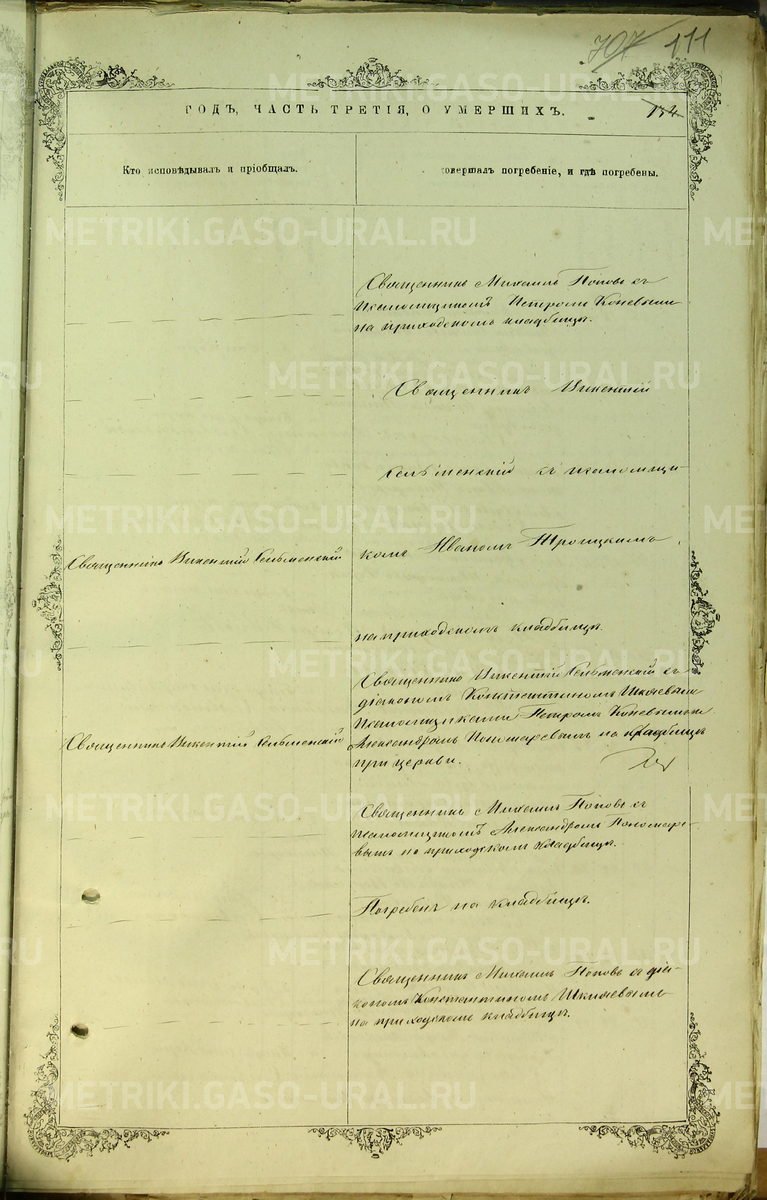 707 111
ГОДЪ, ЧАСТЬ ТРЕТІЯ, О УМЕРШИХЪ.
134
Кто исповѣдывалъ и пріобщалъ.
совершалъ погребеніе, и гдѣ погребены.
Священникъ Михаилъ Поповъ съ
псаломщикомъ Петромъ Коневымъ
на приходскомъ кладбищѣ.
Священникъ Викентій
съ псаломщи-
комъ Иваномъ Троицкимъ
на приходскомъ кладбищѣ.
Священникъ Викентій
Священникъ Викентій съ
діакономъ Константиномъ
псаломщиками Петромъ Коневымъ и
Александромъ Пономаревымъ на кладбищѣ
при церкви.
Священникъ Викентій
Священникъ Михаилъ Поповъ съ
псаломщикомъ Александромъ Пономаре-
вымъ на приходскомъ кладбищѣ.
Погребенъ на кладбищѣ.
Священникъ Михаилъ Поповъ съ діа-
кономъ Константиномъ
на приходскомъ кладбищѣ.
METRIKI.GASO-URAL.RU